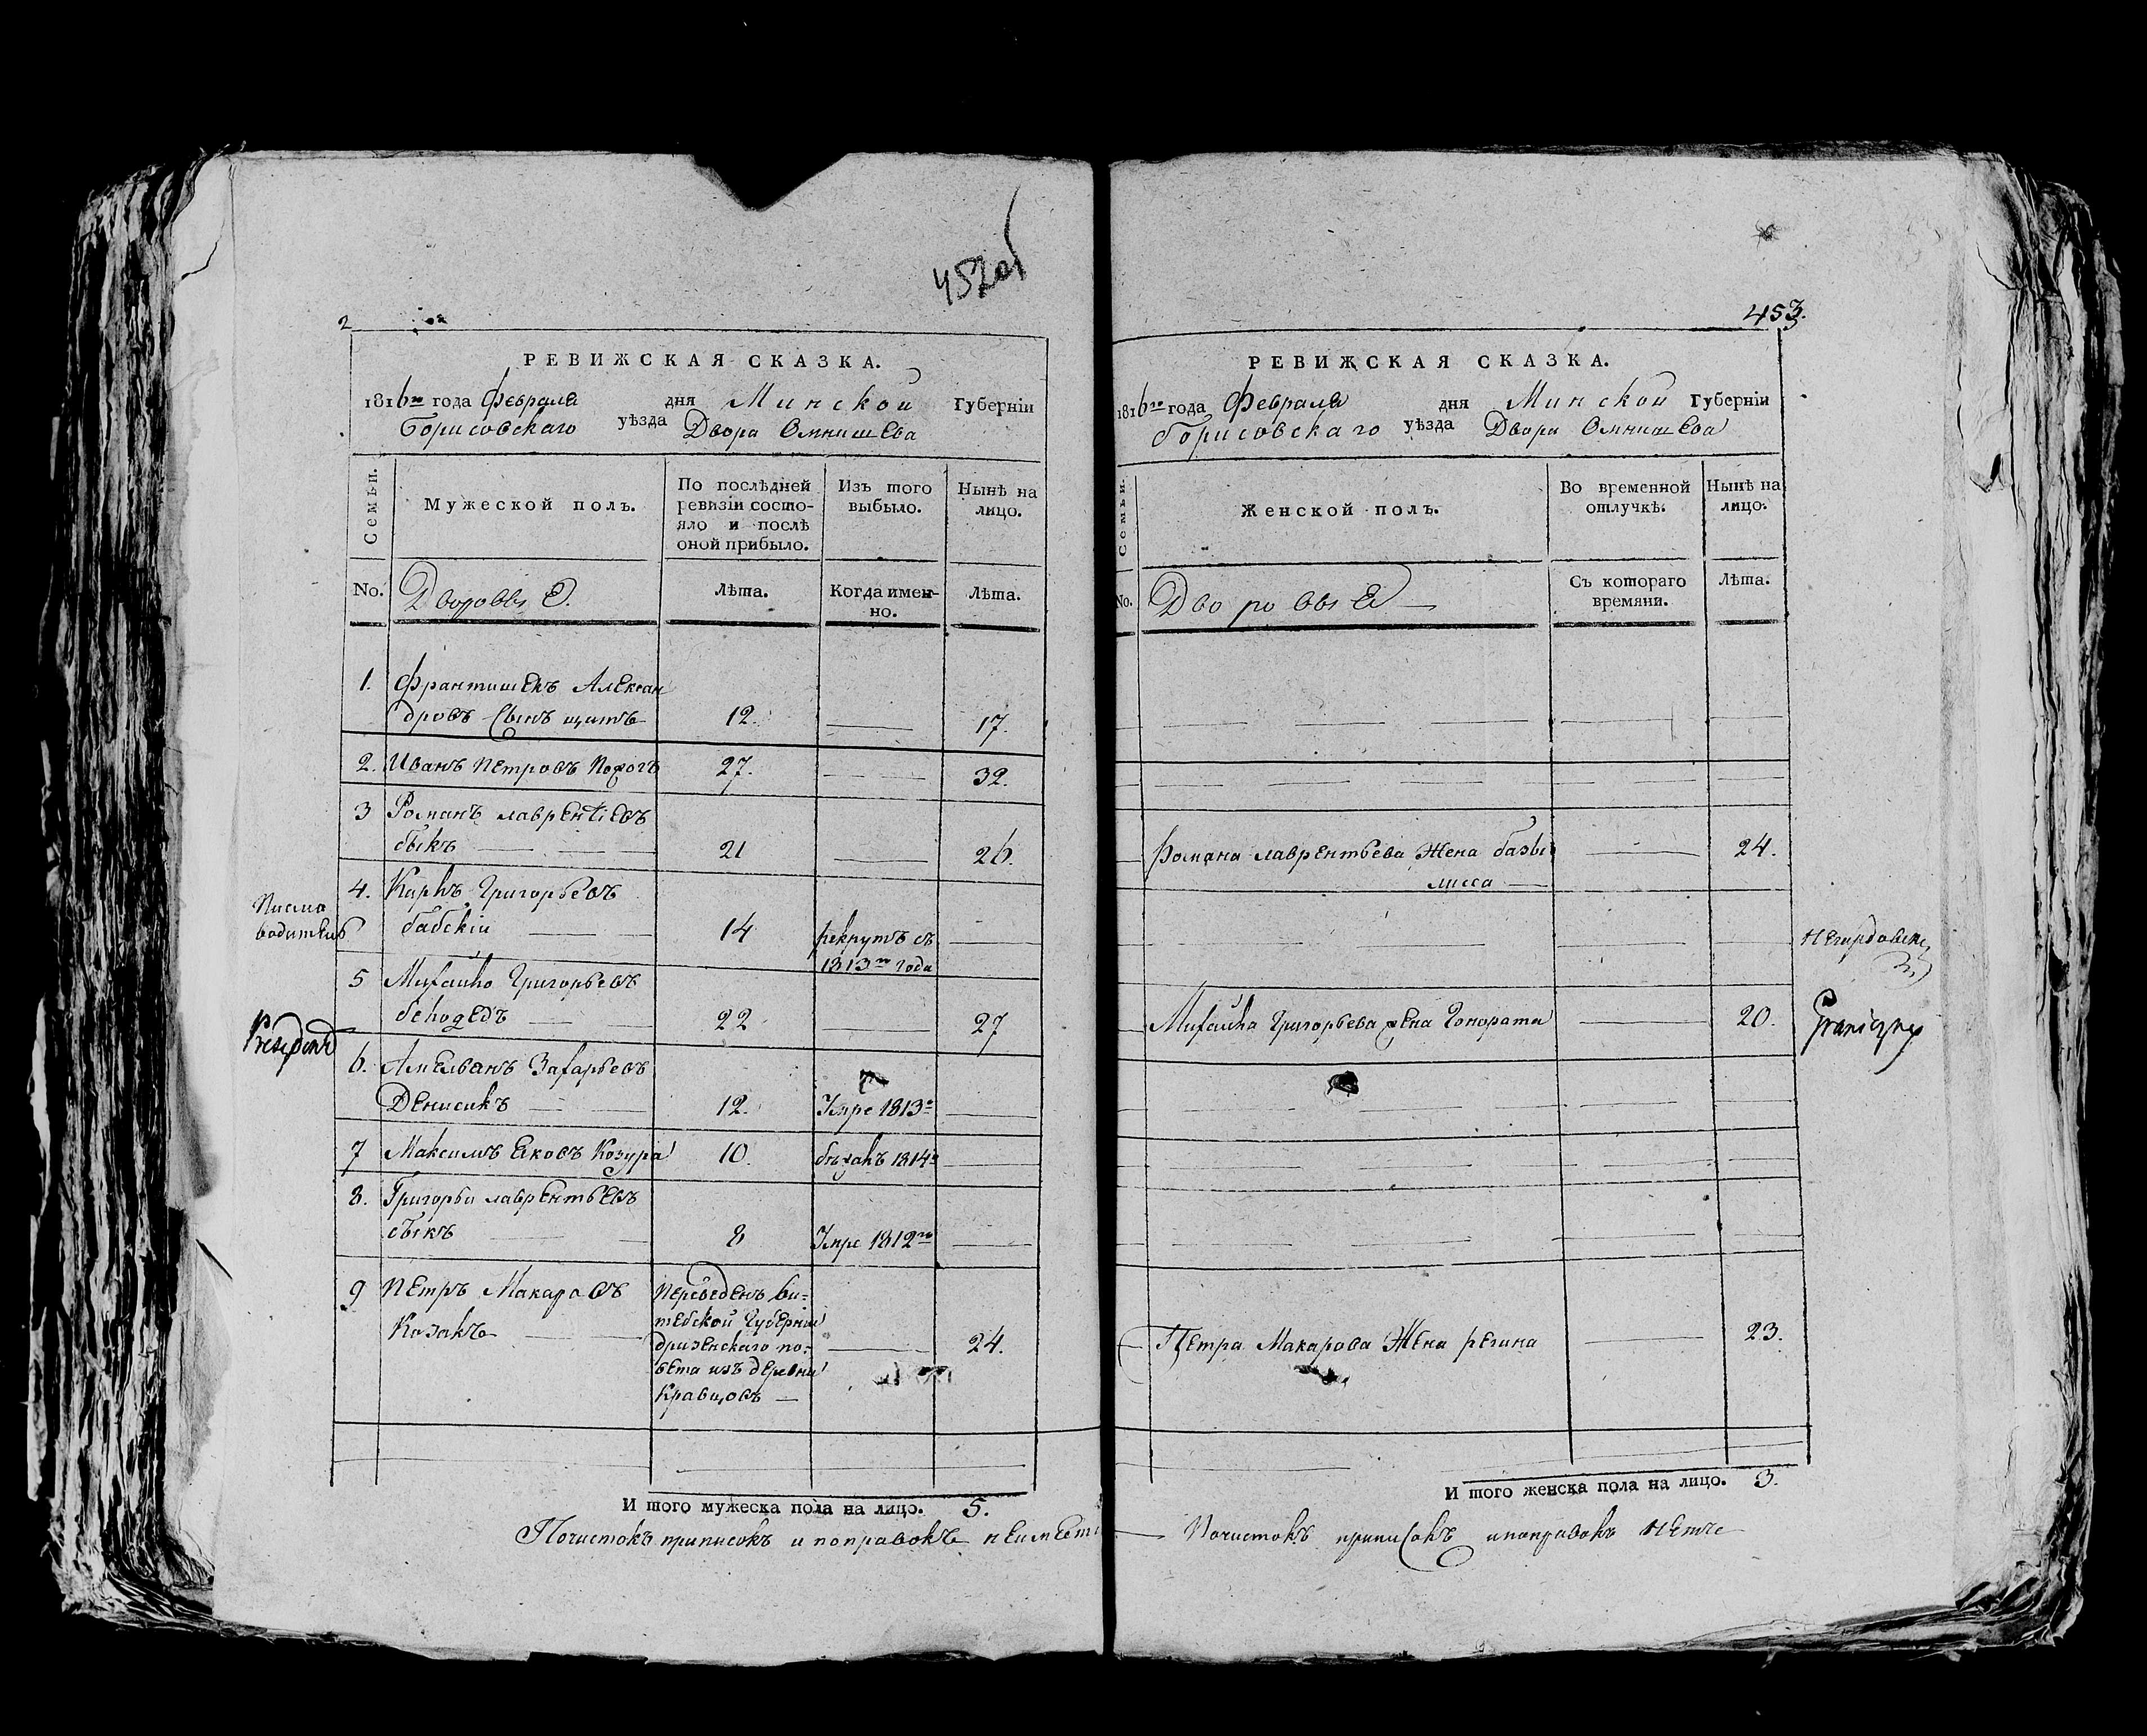 452об
2
РЕВИЖСКАЯ СКАЗКА.
1816го года Февраля дня Минской Губерніи
Борисовскаго уѣзда Двора Омнишева
Семьи.
Мужеской полъ.
По послѣдней ревизіи состояло и послѣ оной прибыло.
Изъ того выбыло.
Нынѣ на лицо.
No.
Дворовые.
Лѣта.
Когда именно.
Лѣта.
1. Франтишекъ Алексан
дровъ Сынъ щитъ 12. 17.
2. Иванъ Петровъ 27. 32.
3 Романъ лаврентіевъ
быкъ 21 26.
4. Карпъ Григорьевъ
бабскій 14 рекрутъ съ
1813го года
Письмо
водитель
5 Михайло Григорьевъ
22 27
Prezydent
6. Амельянъ Захарьевъ
Денисикъ 12. Умре 1813го
7 Максимъ Яковъ Козура 10. бѣжалъ 1814го
8. Григорьи лаврентьевъ
быкъ 8 Умре 1812го
9 Петръ Макаровъ
Казакъ
Переведенъ Ви-
тебской Губерніи
дризенскаго по-
вета изъ деревни
Кравцовъ
24.
И того мужеска пола на лицо. 5.
Почистокъ приписокъ и поправокъ неимеетъ
453.
РЕВИЖСКАЯ СКАЗКА.
1816го года Февраля дня Минской Губерніи
Борисовскаго уѣзда Двора Омнишева
Семьи.
Женской полъ.
Во временной отлучкѣ.
Нынѣ на лицо.
No.
Дворовые
Съ котораго времяни.
Лѣта.
Романа лаврентьева Жена базы
лисса 24.
Михайла Григорьева жена Гонората 20.
Петра Макарова Жена регина 23.
И того женска пола на лицо. 3.
Почистокъ приписокъ ипоправокъ нетъ